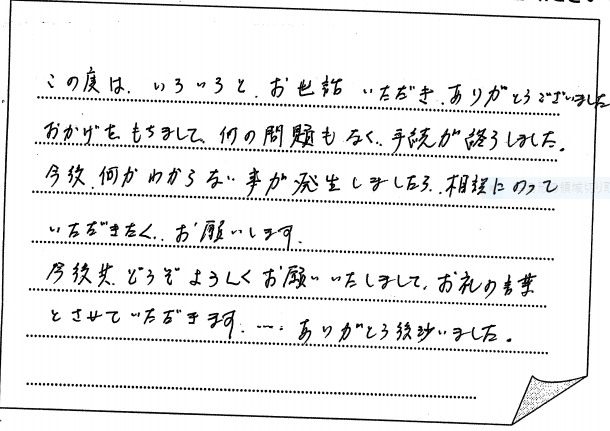 この度は、いろいろと、お世話いただき、ありがとうございました
おかげをもちまして、何の問題もなく、手続が終了しました。
今後、何かわからない事が発生しましたら、相談にのって
いただきたく、お願いします。
今後共、どうぞよろしくお願いいたしまして、お礼の言葉
とさせていただきます。…. ありがとう後ざいました。